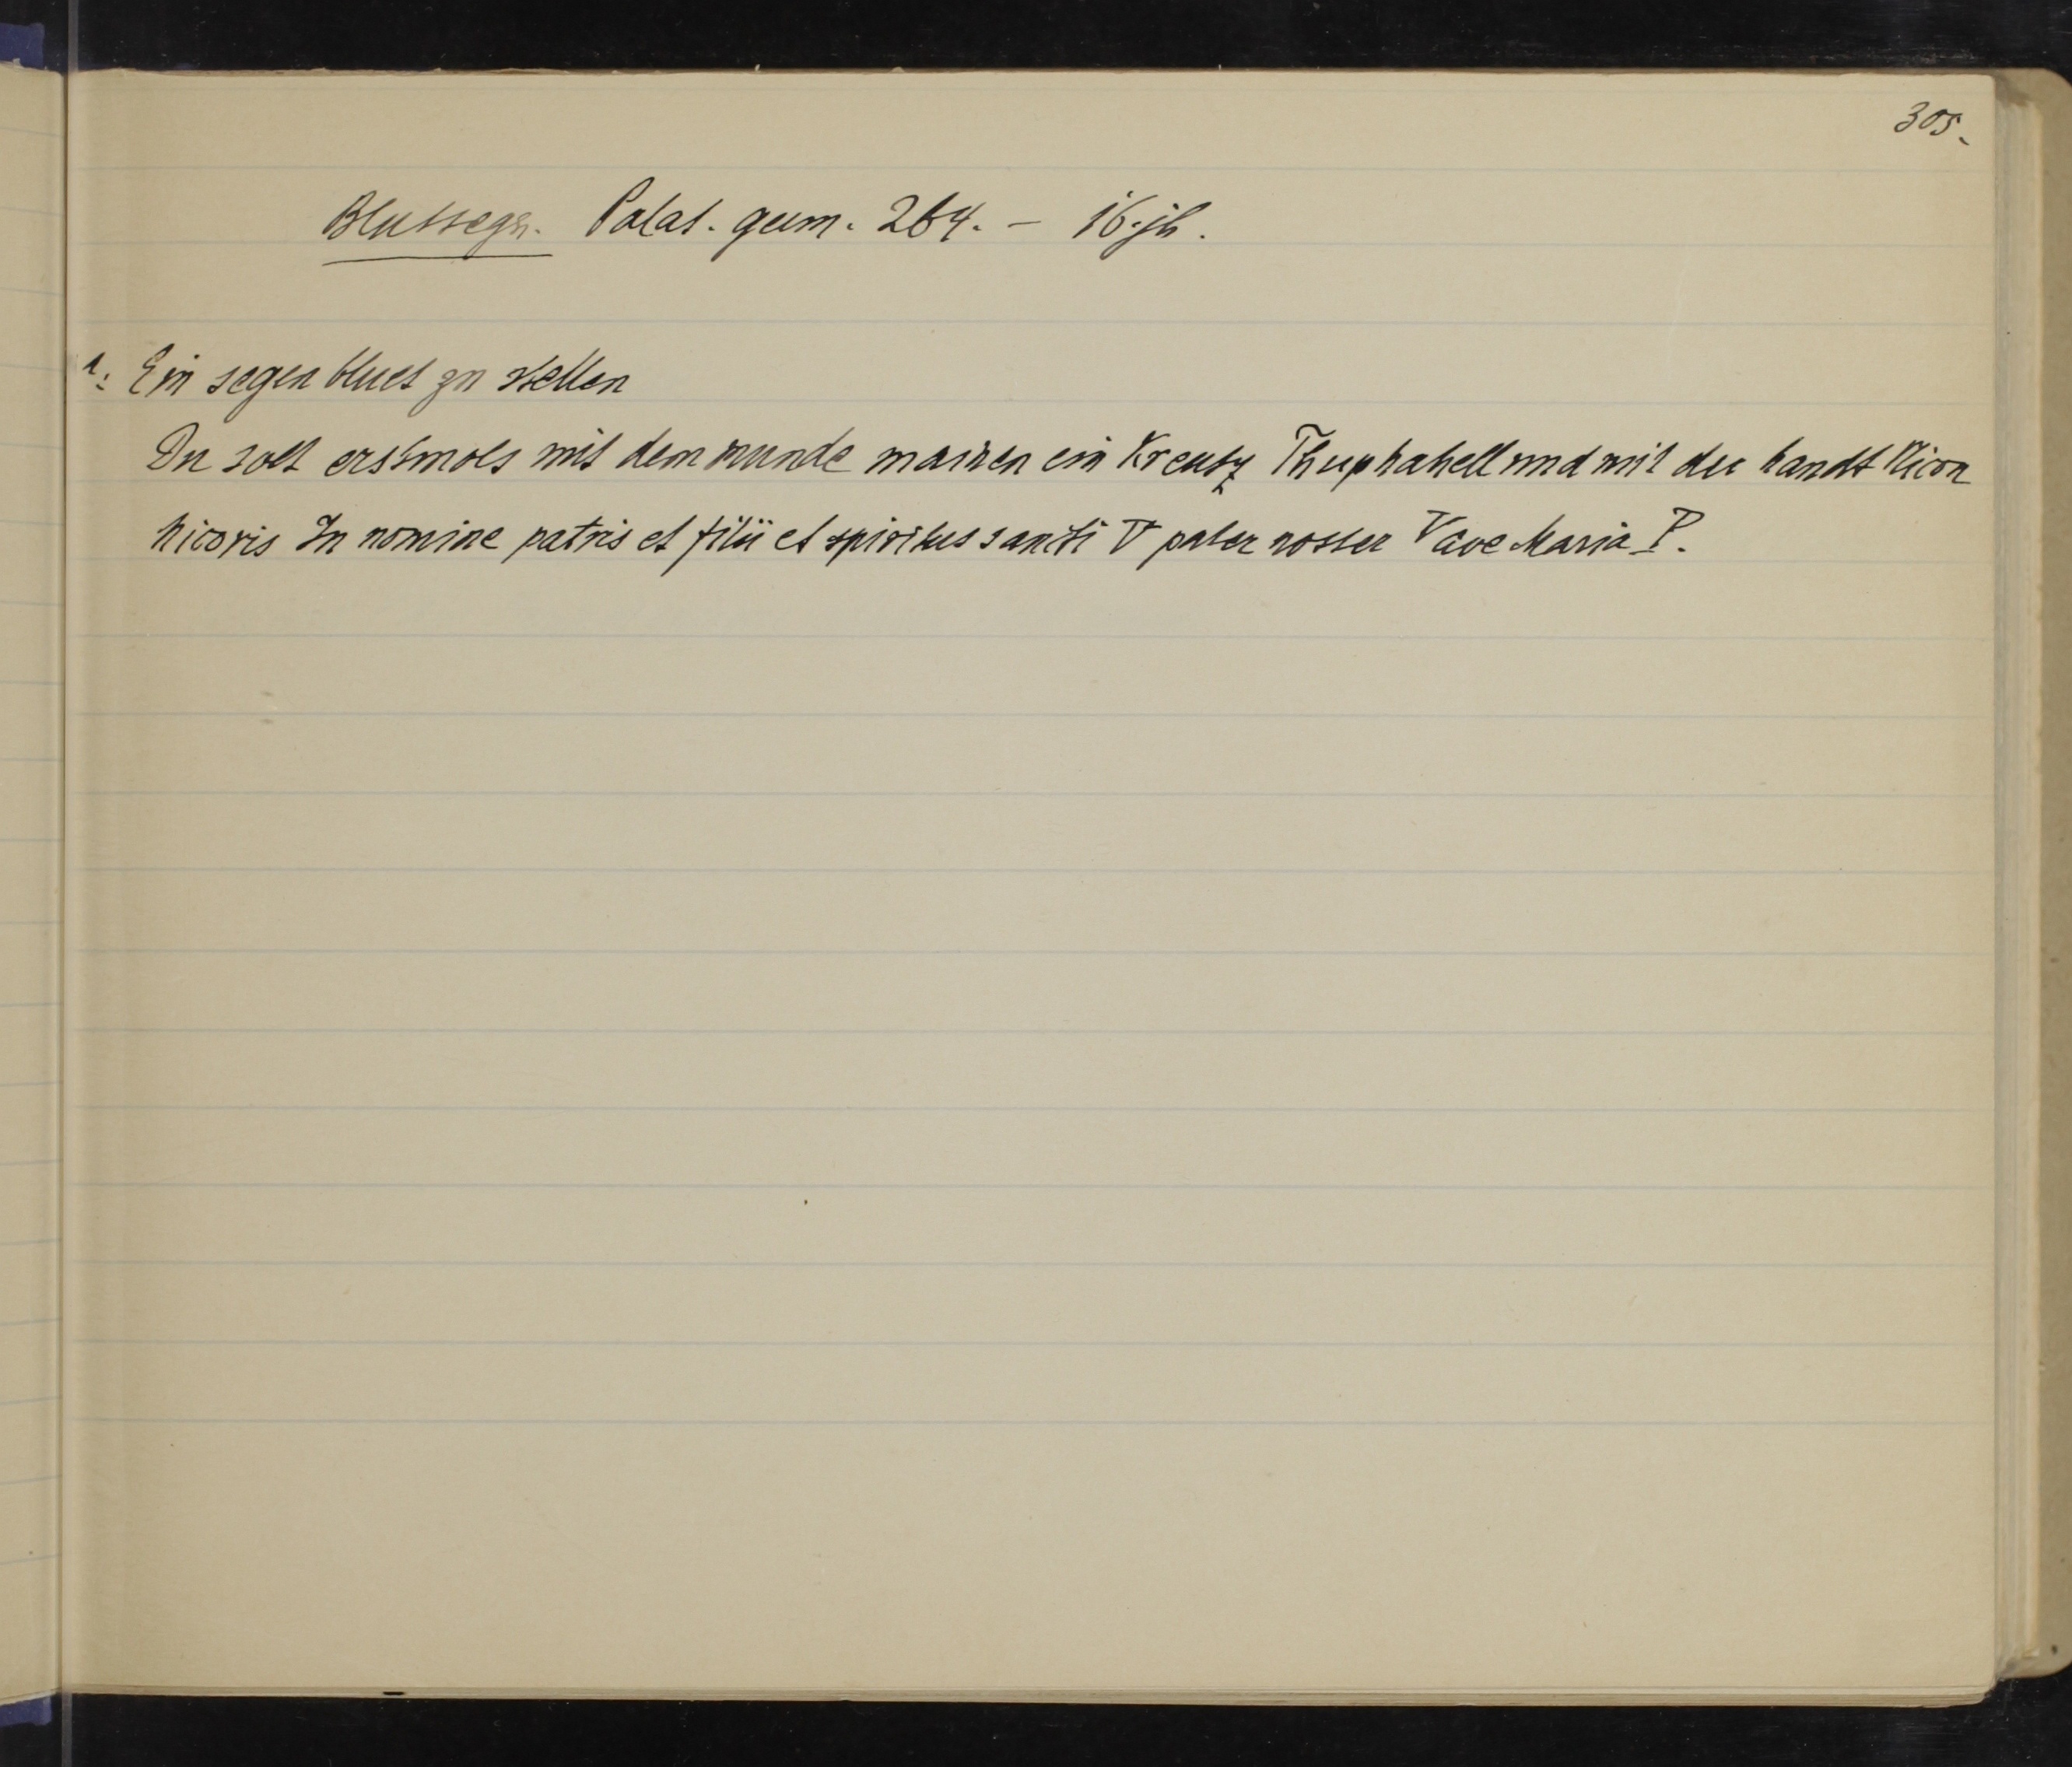 305.
Blutsegn. Palat. germ. 264. – 16. jh.
1. Ein segen bluet zu stellen
Du solt erstmols mit dem munde machen ein Kreutz Thuphahell und mit der handt Nicon
Nicoris In nomine patris et filii et spiritus sancti V pater noster V ave Maria I.